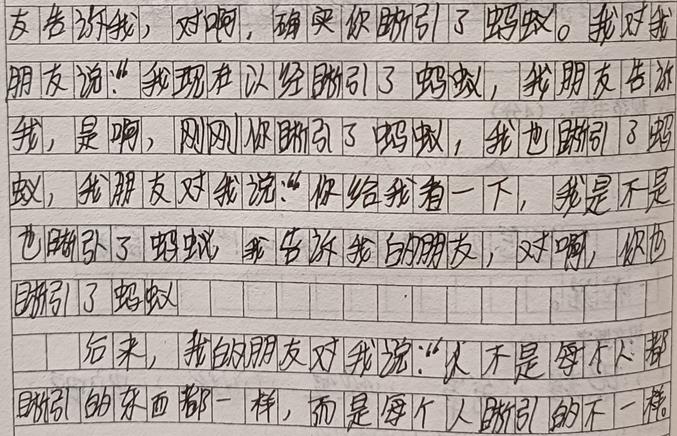 友告诉我，对啊，确实你吸引了蚂蚁。我对我
朋友说：“我现在以经吸引了蚂蚁，我朋友告诉
我，是啊，刚刚你吸引了蚂蚁，我也吸引了蚂
蚁，我朋友对我说：“你给我看一下，我是不是
也吸引了蚂蚁 我告诉我的朋友，对啊，你也
吸引了蚂蚁
后来，我的朋友对我说：“ 不是每个人都
吸引的东西都一样，而是每个人吸引的不一样。